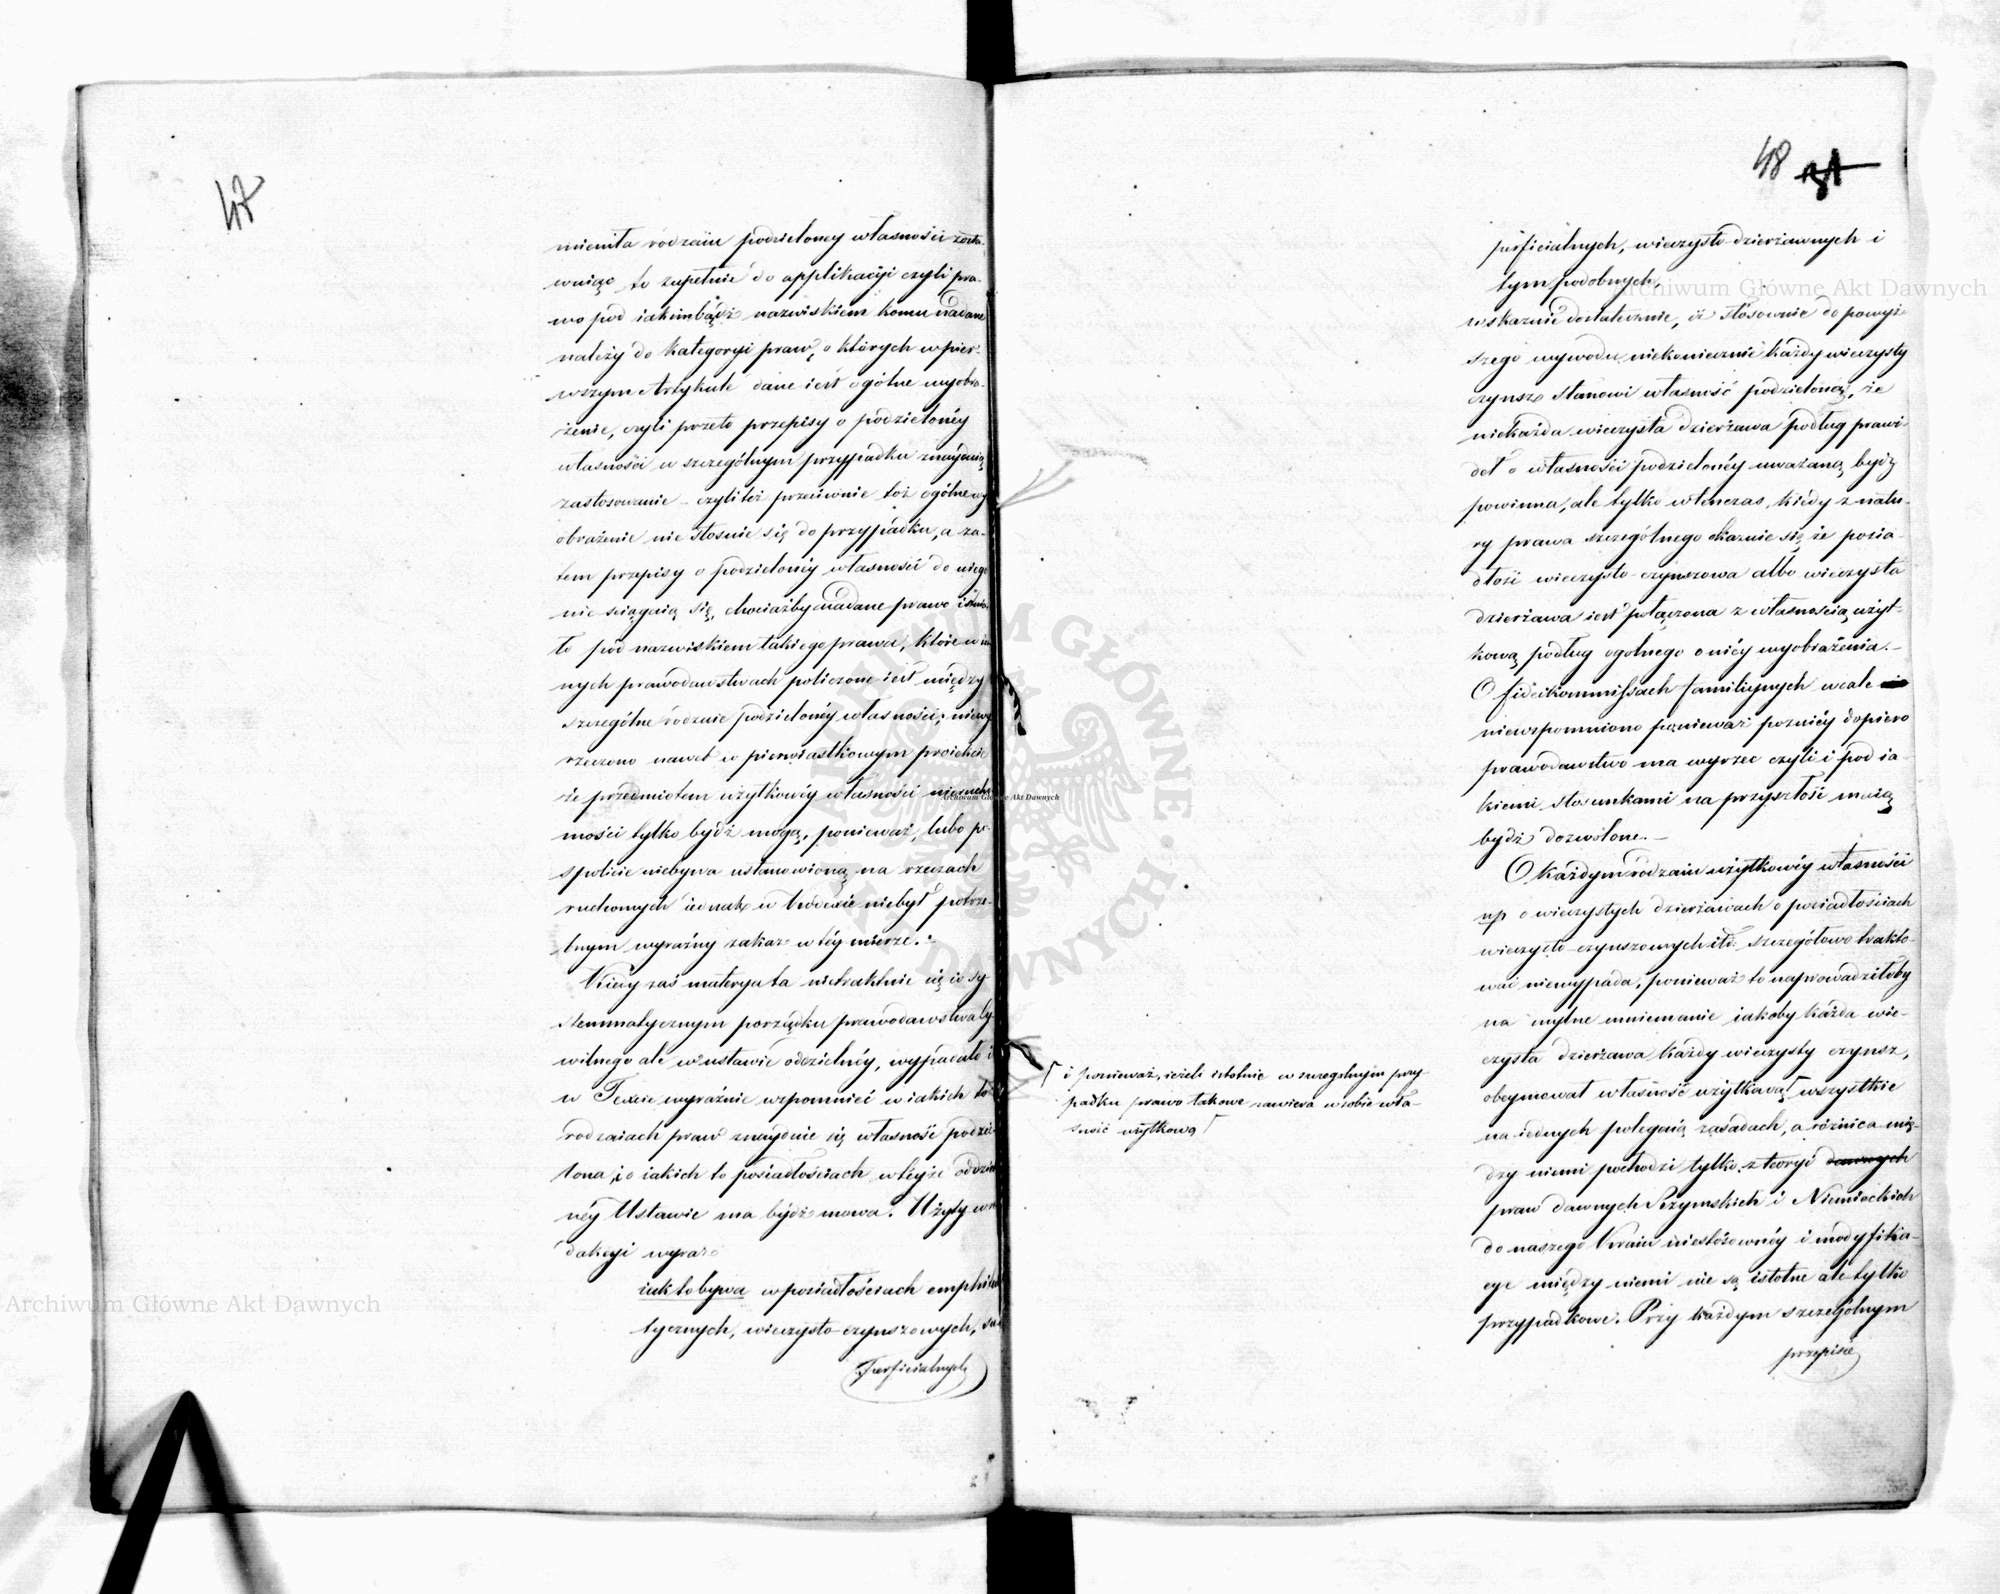 47
mienita rodzaiu podzieloney własności zosta-
wuiąc to zupełnie do applikacyi czyli pra-
wo pod iakimbądź nazwiskiem komu nadane
należy do kategoryi praw, o których w pier-
wszym Artykule dane iest ogólne wyobra-
żenie, czyli przeto przepisy o podzielonéy
własności w szczególnym przypadku znayduią
zastosowanie – czyli téż przeciwnie toż ogólne wy
obrażenie nie stosuie się do przypadku, a za-
tem przepisy o podzielonéy własności do niego
nie ściągaią się, chociażby nadane prawo istnia-
ło pod nazwiskiem takiego prawa, które w in
nych prawodawstwach policzone iest między
szczególne rodzaie podzielonéy własności; niewy
rzeczono nawet w pierwiastkowym proiekcie
że przedmiotem użytkowéy własności nierucho
mości tylko bydź mogą, ponieważ, lubo po-
spolicie niebywa ustanowioną na rzeczach
ruchomych iednak w Kodexie niebył potrze-
bnym wyraźny zakaz w téy mierze.–
Kiedy zaś materya ta nietraktuie się w sy
stemmatycznym porządku prawodawstwa cy-
wilnego ale w ustawie oddzielnéy, wypadało i
w Texcie wyraźnie wspomnieć w iakich to
rodzaiach praw znayduie się własność podzie-
lona, i o iakich to posiadłościach w téyże oddziel
néy Ustawie ma bydź mowa. Użyty w re
dakcyi wyraz
iak to bywa w posiadłościach emphiteu
tycznych, wieczysto-czynszowych, su
perficialnych
48
perficialnych, wieczysto-dzierżawnych i
tym podobnych,
wskazuie dostatecznie, iż stosownie do powyż-
szego wywodu niekoniecznie każdy wieczysty
czynsz stanowi własność podzieloną, że
niekażda wieczysta dzierżawa podług prawi-
deł o własności podzielonéy uważaną bydź
powinna, ale tylko wtenczas, kiedy z natu-
ry prawa szczególnego okazuie się że posia-
dłość wieczysto-czynszowa albo wieczysta
dzierżawa iest połączona z własnością użyt-
kową podług ogolnego o niéy wyobrażenia.–
O fideikommissach familiynych wcale
niewspomniono ponieważ poźniéy dopiero
prawodawstwo ma wyrzec czyli i pod ia-
kiemi stosunkami na przyszłość maią
bydź dozwolone.–
O każdym rodzaiu użytkowéy własności
np o wieczystych dzierżawach o posiadłościach
wieczysto-czynszowych itd. szczegółowo trakto-
wać niewypada, ponieważ to naprowadziłoby
na mylne mniemanie iakoby każda wie-
czysta dzierżawa każdy wieczysty czynsz,
obeymował własność użytkową ⌈ wszystkie
na iednych polegaią zasadach, a różnica mię-
dzy niemi pochodzi tylko z teoryi dawnych
praw dawnych Rzymskich i Niemieckich
do naszego Kraiu niestósownéy i modyfika-
cye między niemi nie są istotne ale tylko
przypadkowe. Przy każdym szczególnym
przepisie
⌈ i ponieważ, ieżeli istotnie w szczegulnym przy-
padku prawo takowe zawiera w sobie wła-
sność użytkową ⌈
Archiwum Główne Akt Dawnych
Archiwum Główne Akt Dawnych
Archiwum Główne Akt Dawnych
ARCHIWUM GŁÓWNE · AKT DAWNYCH ·